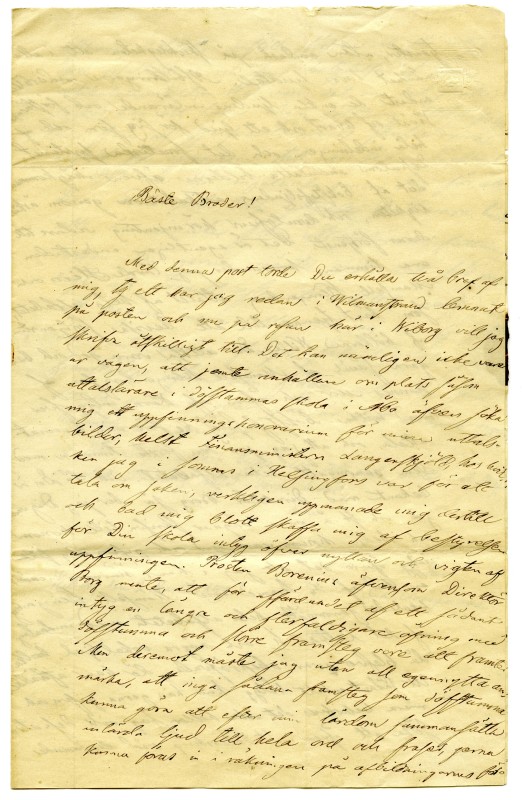 Bäste Broder!
Med denna post torde Du erhålla två bref af
mig, ty ett har jag redan i Wilmanstrand lemnat
på posten och nu på resan här i Wiborg vill jag
skrifva åtskilligt till. Det kan nämligen icke vara
ur vägen, att jemte anhållan om plats såsom
uttalslärare i döfstummas skola i Åbo äfven söka
mig ett uppfinningshonorarium för mina uttals-
bilder, helst Finansministern Langenskjöld, hos hvil-
ken jag i somras i Helsingfors var för att
tala om saken, verkligen uppmanade mig dertill
och bad mig blott skaffa mig af bestyrelsen
för Din skola intyg öfver nyttan och vigten af
uppfinningen. Prosten Borenius äfvensom Direktör
Borg mente, att för utfärdandet af ett sådant
intyg en längre och flerfaldigare öfning med
döfstumma och större framsteg vore att
Men deremot måste jag uten all egennytta an-
märka, att inga sådana framsteg som döfstumma
kunna göra att efter min lärdom sammansätta
inlärda ljud till hela ord och fraser, gerna
kunna föras in i räkningen på afbildningarnes